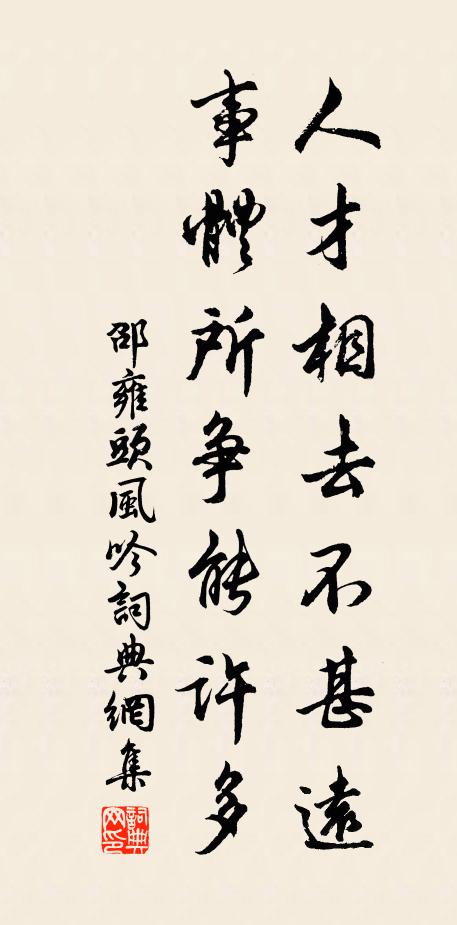 人才相去不甚遠
事體所爭能許多
邵雍頭風吟詞典網集
詞典網印